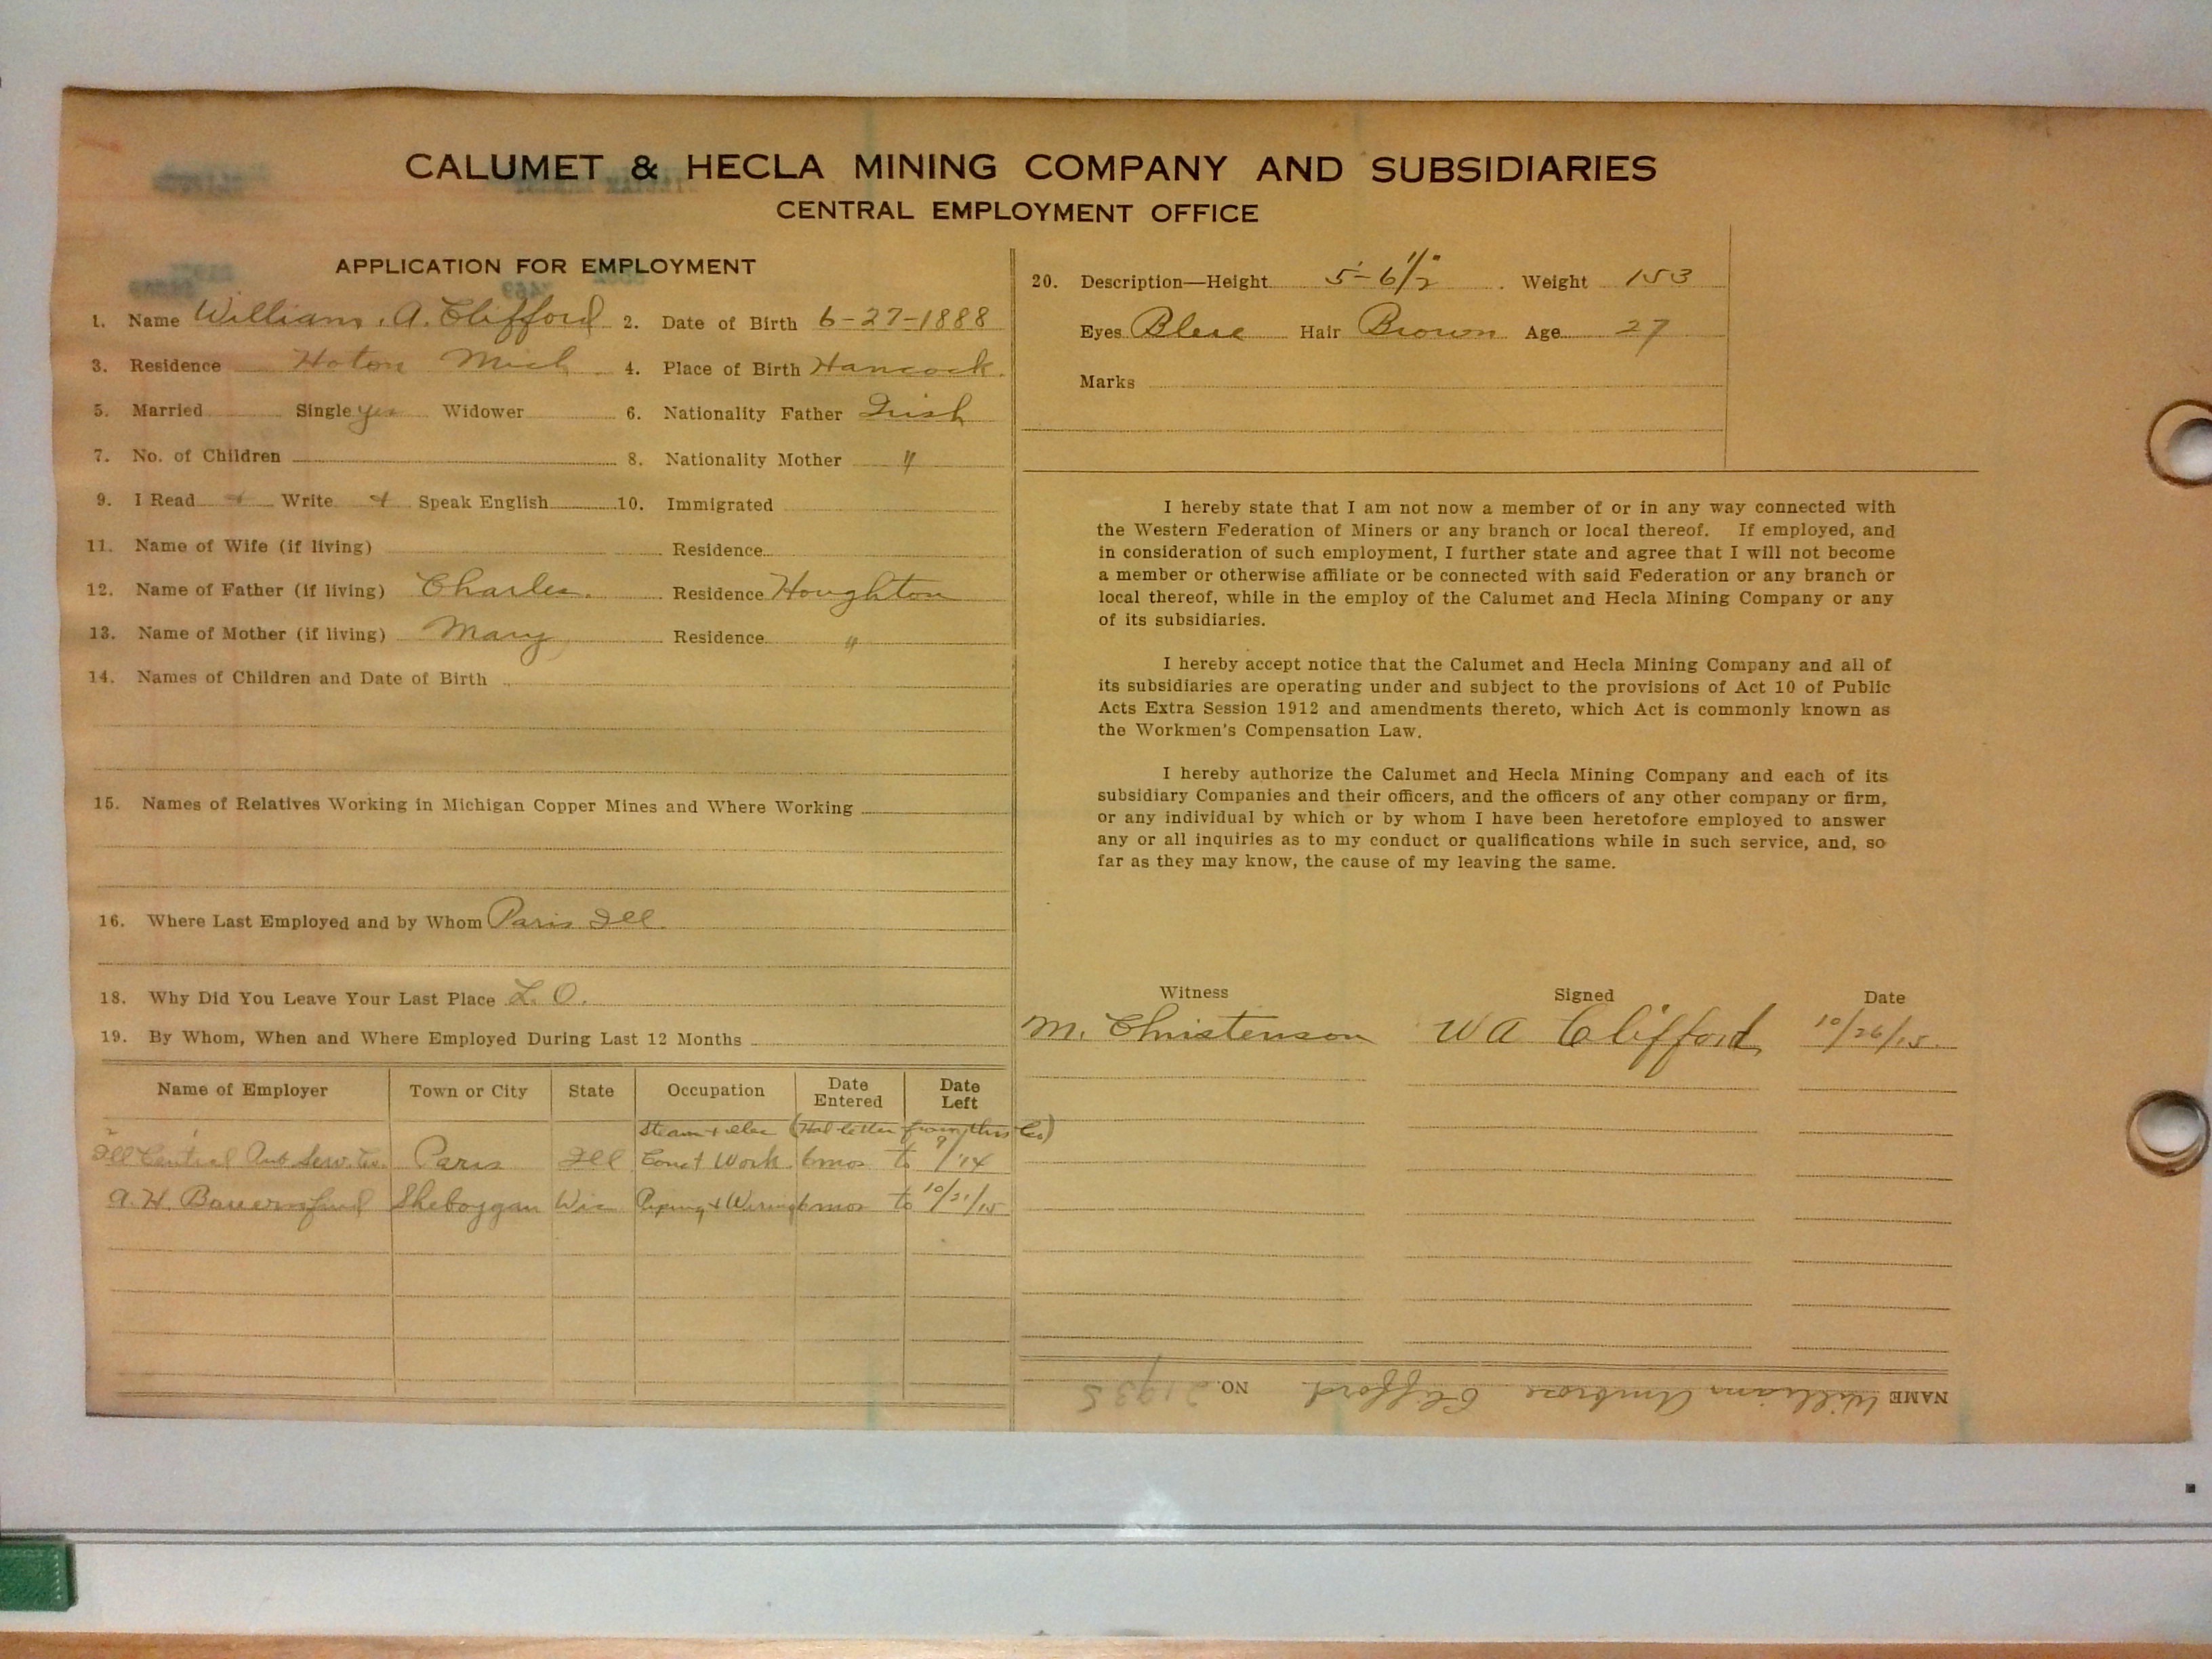 CALUMET & HECLA MINING COMPANY AND SUBSIDIARIES
CENTRAL EMPLOYMENT OFFICE
APPLICATION FOR EMPLOYMENT
1. Name William. A. Clifford 2. Date of Birth 6-27-1888
3. Residence Hoton Mich. 4. Place of Birth Hancock.
5. Married Single yes Widower 6. Nationality Father Irish
7. No. of Children 8. Nationality Mother "
9. I Read + Write + Speak English 10. Immigrated
11. Name of Wife (if living) Residence
12. Name of Father (if living) Charles. Residence Houghton
13. Name of Mother (if living) Mary Residence "
14. Names of Children and Date of Birth
15. Names of Relatives Working in Michigan Copper Mines and Where Working
16. Where Last Employed and by Whom Paris Ill.
18. Why Did You Leave Your Last Place L. O.
19. By Whom, When and Where Employed During Last 12 Months
Name of Employer Town or City State Occupation Date Entered Date Left
Steam + elec (Had letter from this Co)
Ill Central Serv. Co. Paris Ill Const Work 6 mos to 9/'14
A. H. Sheboygan Wis Piping + Wiring 6 mos to 10/21/15
20. Description—Height 5'-6 1/2" Weight 153
Eyes Blue Hair Brown Age 27
Marks
I hereby state that I am not now a member of or in any way connected with
the Western Federation of Miners or any branch or local thereof. If employed, and
in consideration of such employment, I further state and agree that I will not become
a member or otherwise affiliate or be connected with said Federation or any branch or
local thereof, while in the employ of the Calumet and Hecla Mining Company or any
of its subsidiaries.
I hereby accept notice that the Calumet and Hecla Mining Company and all of
its subsidiaries are operating under and subject to the provisions of Act 10 of Public
Acts Extra Session 1912 and amendments thereto, which Act is commonly known as
the Workmen's Compensation Law.
I hereby authorize the Calumet and Hecla Mining Company and each of its
subsidiary Companies and their officers, and the officers of any other company or firm,
or any individual by which or by whom I have been heretofore employed to answer
any or all inquiries as to my conduct or qualifications while in such service, and, so
far as they may know, the cause of my leaving the same.
Witness Signed Date
M. Christenson W A Clifford 10/26/15.
NAME William Ambrose Clifford NO. 21935